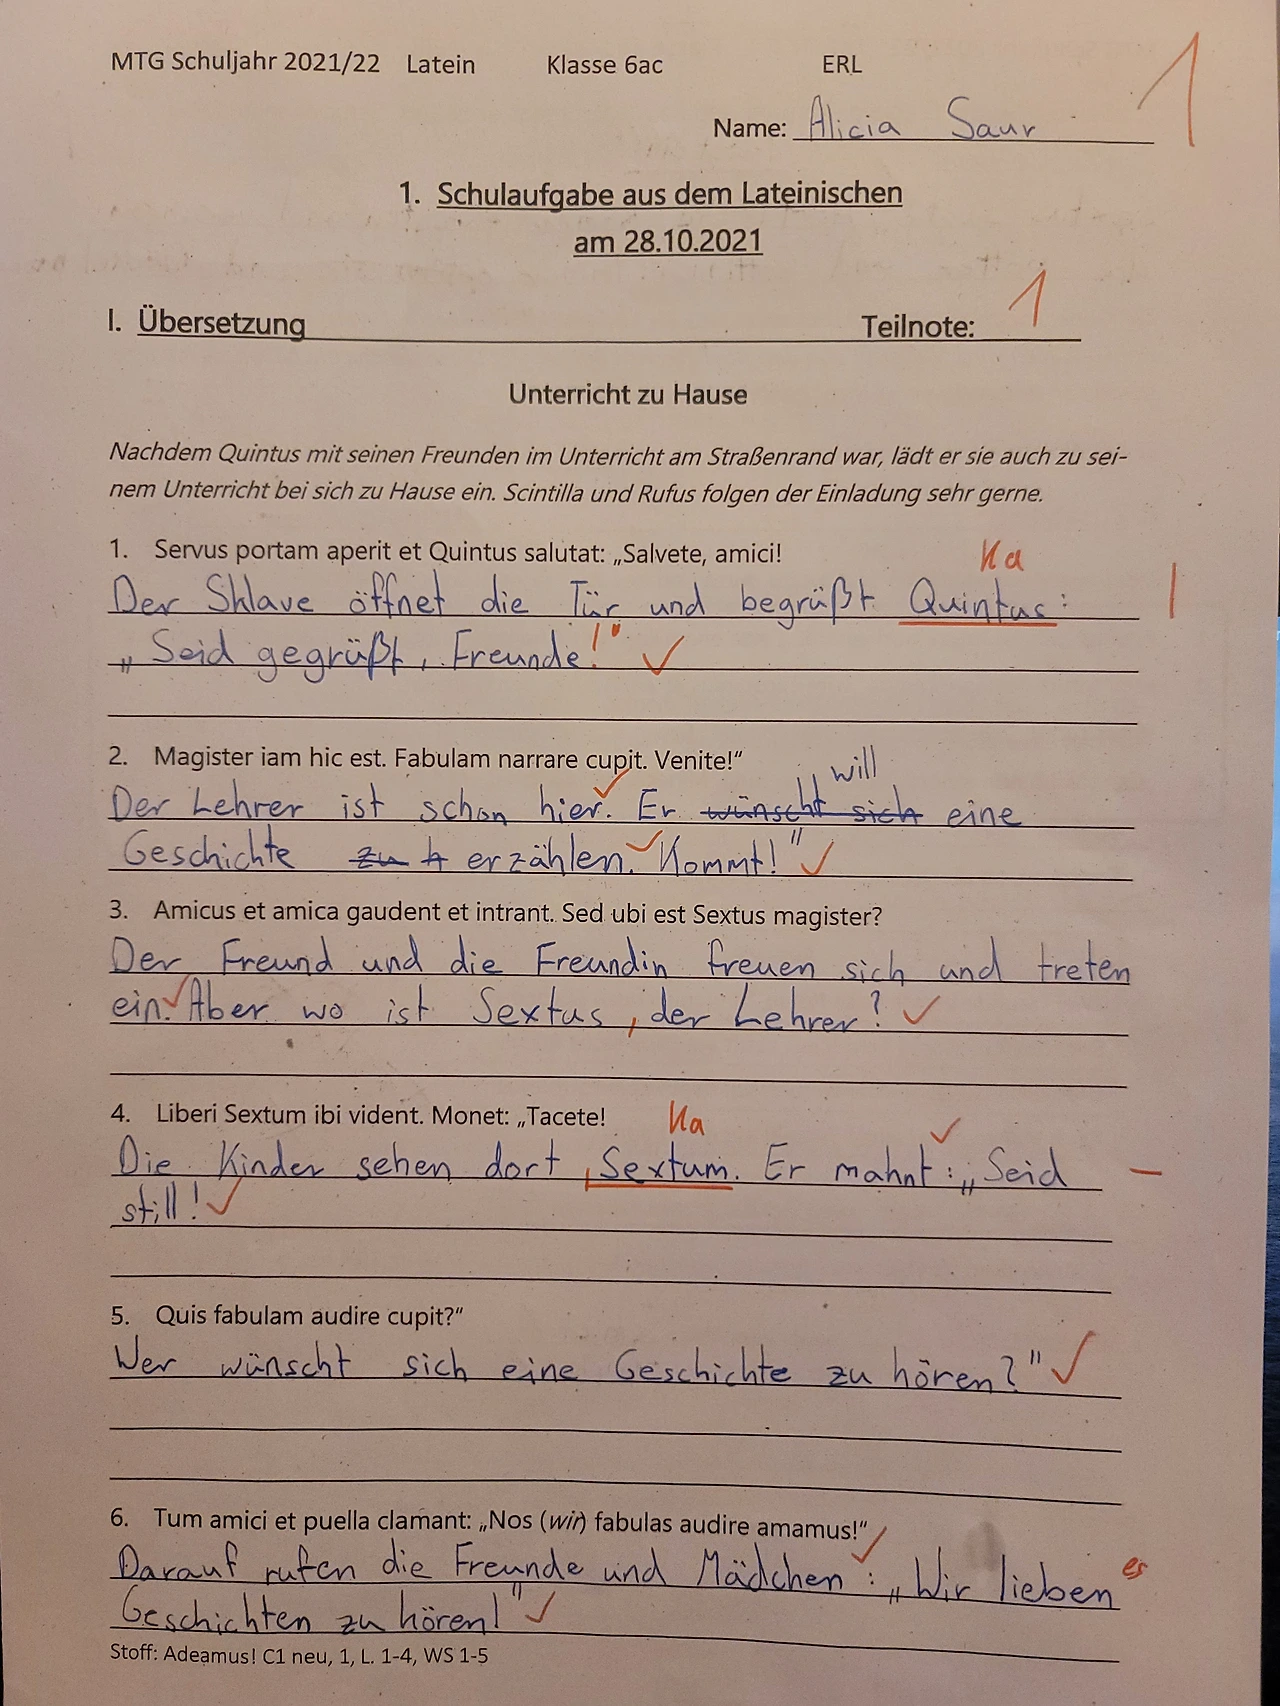 MTG Schuljahr 2021/22 Latein Klasse 6ac ERL
1
Name: Alicia Saur
1. Schulaufgabe aus dem Lateinischen
am 28.10.2021
I. Übersetzung Teilnote: 1
Unterricht zu Hause
Nachdem Quintus mit seinen Freunden im Unterricht am Straßenrand war, lädt er sie auch zu sei-
nem Unterricht bei sich zu Hause ein. Scintilla und Rufus folgen der Einladung sehr gerne.
1. Servus portam aperit et Quintus salutat: „Salvete, amici!
Ka
Der Sklave öffnet die Tür und begrüßt Quintus: |
„Seid gegrüßt, Freunde!" ✓
2. Magister iam hic est. Fabulam narrare cupit. Venite!“
will
Der Lehrer ist schon hier. ✓ Er wünscht sich eine
Geschichte zu h erzählen. ✓ Kommt!" ✓
3. Amicus et amica gaudent et intrant. Sed ubi est Sextus magister?
Der Freund und die Freundin freuen sich und treten
ein. ✓ Aber wo ist Sextus, der Lehrer? ✓
4. Liberi Sextum ibi vident. Monet: „Tacete!
Ka ✓
Die Kinder sehen dort Sextum. Er mahnt: „Seid –
still! ✓
5. Quis fabulam audire cupit?“
Wer wünscht sich eine Geschichte zu hören?" ✓
6. Tum amici et puella clamant: „Nos (wir) fabulas audire amamus!“
Darauf rufen die Freunde und Mädchen ✓ : „Wir lieben es
Geschichten zu hören!" ✓
Stoff: Adeamus! C1 neu, 1, L. 1-4, WS 1-5